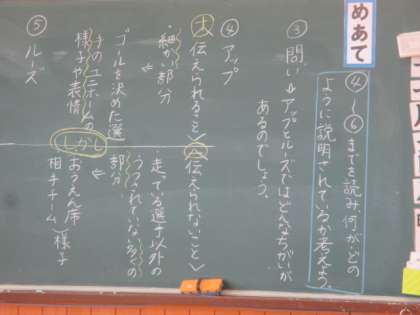 めあて
④〜⑥までを読み、何が、どの
ように説明されているか考えよう。
③問い→アップとルーズではどんなちがいが
あるのでしょう。
④アップ
伝えられること
・細かい部分
ゴールを決めた選
手のユニホーム
様子や表情
しかし
伝えられないこと
・走っている選手以外の
うつされていない多くの
部分
おうえん席
相手チーム
様子
⑤ルーズ